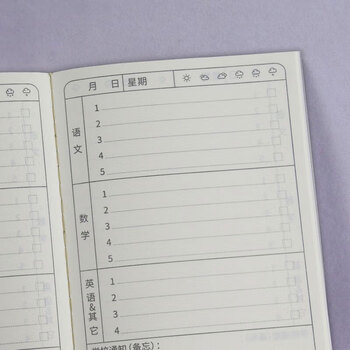 月 日 星期
语文
1
2
3
4
5
数学
1
2
3
4
5
英语&其它
1
2
3
4
学校通知(备忘):